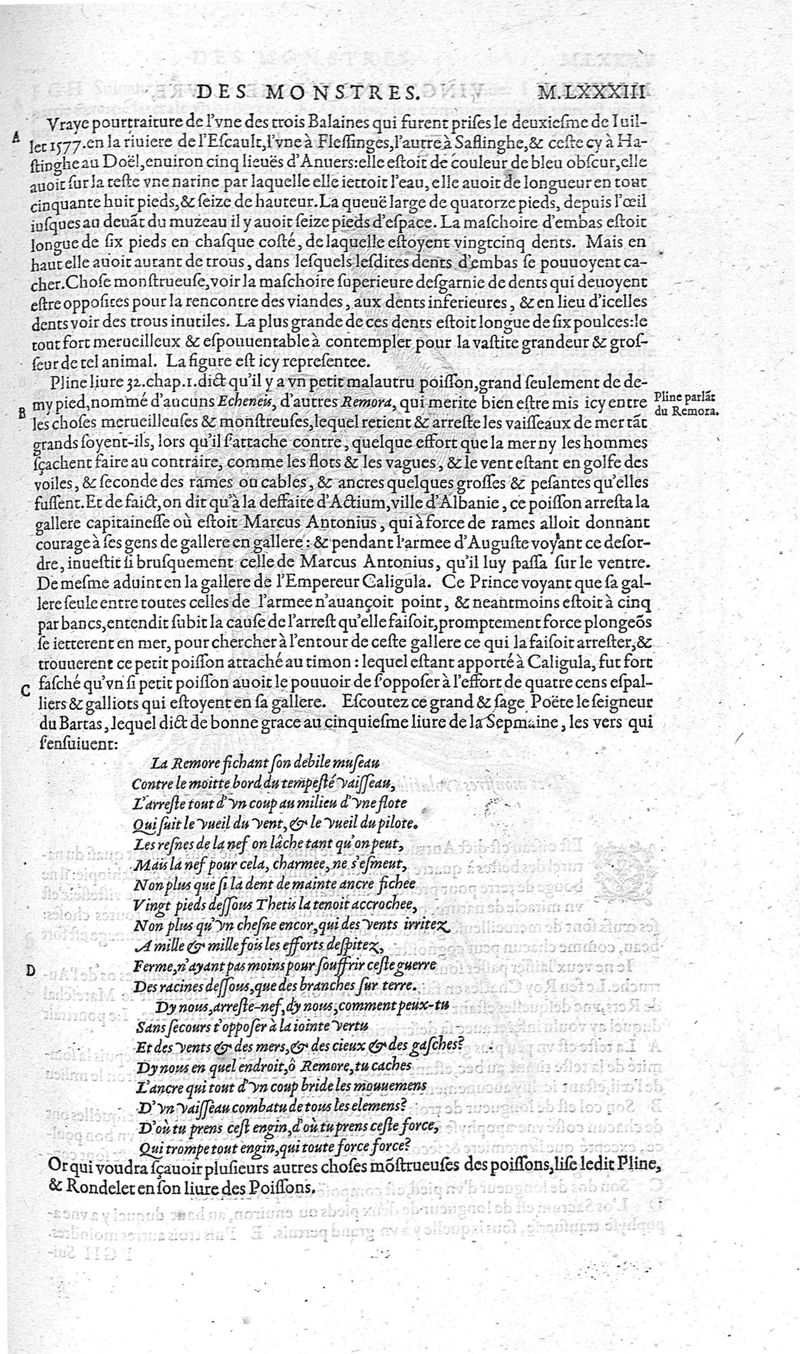 DES MONSTRES. M.LXXXIII
A
Vraye pourtraiture de l'vne des trois Balaines qui furent prises le deuxieſme de Iuil-
let 1577. en la riuiere de l'Eſcault, l'vne à Fleſſinges, l'autre à Saſlinghe, & ceſte cy à Ha-
ſtinghe au Doël, enuiron cinq lieuës d'Anuers: elle eſtoit de couleur de bleu obſcur, elle
auoit ſur la teſte vne narine par laquelle elle iettoit l'eau, elle auoit de longueur en tout
cinquante huit pieds, & ſeize de hauteur. La queuë large de quatorze pieds, depuis l'œil
iuſques au deuãt du muzeau il y auoit ſeize pieds d'eſpace. La maſchoire d'embas eſtoit
longue de ſix pieds en chaſque coſté, de laquelle eſtoyent vingtcinq dents. Mais en
haut elle auoit autant de trous, dans leſquels leſdites dents d'embas ſe pouuoyent ca-
cher. Choſe monſtrueuſe, voir la maſchoire ſuperieure deſgarnie de dents qui deuoyent
eſtre oppoſites pour la rencontre des viandes, aux dents inferieures, & en lieu d'icelles
dents voir des trous inutiles. La plus grande de ces dents eſtoit longue de ſix poulces: le
tout fort merueilleux & eſpouuentable à contempler pour la vaſtite grandeur & groſ-
ſeur de tel animal. La figure eſt icy repreſentee.
Pline liure 32. chap. 1. dict qu'il y a vn petit malautru poiſſon, grand ſeulement de de-
B
my pied, nommé d'aucuns Echeneis, d'autres Remora, qui merite bien eſtre mis icy entre
Pline parlãt
du Remora.
les choſes merueilleuſes & monſtreuſes, lequel retient & arreſte les vaiſſeaux de mer tãt
grands ſoyent-ils, lors qu'il s'attache contre, quelque effort que la mer ny les hommes
ſçachent faire au contraire, comme les flots & les vagues, & le vent eſtant en golfe des
voiles, & ſeconde des rames ou cables, & ancres quelques groſſes & peſantes qu'elles
fuſſent. Et de faict, on dit qu'à la deffaite d'Actium, ville d'Albanie, ce poiſſon arreſta la
gallere capitaineſſe où eſtoit Marcus Antonius, qui à force de rames alloit donnant
courage à ſes gens de gallere en gallere: & pendant l'armee d'Auguſte voyant ce deſor-
dre, inueſtit ſi bruſquement celle de Marcus Antonius, qu'il luy paſſa ſur le ventre.
De meſme aduint en la gallere de l'Empereur Caligula. Ce Prince voyant que ſa gal-
lere ſeule entre toutes celles de l'armee n'auançoit point, & neantmoins eſtoit à cinq
par bancs, entendit ſubit la cauſe de l'arreſt qu'elle faiſoit, promptement force plongeõs
ſe ietterent en mer, pour chercher à l'entour de ceſte gallere ce qui la faiſoit arreſter, &
trouuerent ce petit poiſſon attaché au timon: lequel eſtant apporté à Caligula, fut fort
C
faſché qu'vn ſi petit poiſſon auoit le pouuoir de s'oppoſer à l'effort de quatre cens eſpal-
liers & galliots qui eſtoyent en ſa gallere. Eſcoutez ce grand & ſage Poëte le ſeigneur
du Bartas, lequel dict de bonne grace au cinquieſme liure de la Sepmaine, les vers qui
ſ'enſuiuent:
La Remore fichant ſon debile muſeau
Contre le moitte bord du tempeſté vaiſſeau,
L'arreſte tout d'vn coup au milieu d'vne flote
Qui ſuit le vueil du vent, & le vueil du pilote.
Les reſnes de la nef on lâche tant qu'on peut,
Mais la nef pour cela, charmee, ne s'eſmeut,
Non plus que ſi la dent de mainte ancre fichee
Vingt pieds deſſous Thetis la tenoit accrochee,
Non plus qu'vn cheſne encor, qui des vents irritez
A mille & mille fois les efforts deſpitez,
D
Ferme, n'ayant pas moins pour ſouffrir ceſte guerre
Des racines deſſous, que des branches ſur terre.
Dy nous, arreſte-nef, dy nous, comment peux-tu
Sans ſecours t'oppoſer à la iointe vertu
Et des vents & des mers, & des cieux & des gaſches?
Dy nous en quel endroit, ô Remore, tu caches
L'ancre qui tout d'vn coup bride les mouuemens
D'vn vaiſſeau combatu de tous les elemens?
D'où tu prens ceſt engin, d'où tu prens ceſte force,
Qui trompe tout engin, qui toute force force?
Or qui voudra ſçauoir pluſieurs autres choſes mõſtrueuſes des poiſſons, liſe ledit Pline,
& Rondelet en ſon liure des Poiſſons.